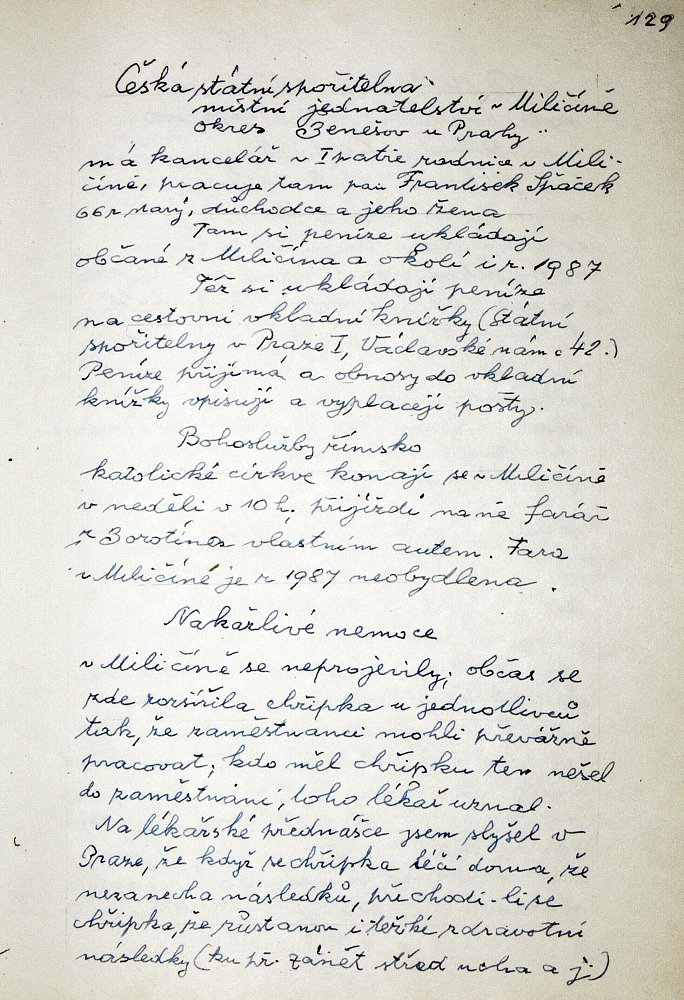 129
Česká státní spořitelna
místní jednatelství v Miličíně
okres Benešov u Prahy
má kancelář v I patře radnice v Mili-
číně, pracuje tam pan František Špaček
66 r starý, důchodce a jeho žena
Tam si peníze ukládají
občané z Miličína a okolí i r. 1987
Též si ukládají peníze
na cestovní vkladní knížky (Státní
spořitelny v Praze I, Václavské nám č 42.)
Peníze přijímá a obnosy do vkladní
knížky vpisují a vyplacejí pošty.
Bohoslužby římsko
katolické církve konají se v Miličíně
v neděli v 10 h. přijíždí na ně farář
z Borotína vlastním autem. Fara
v Miličíně je r 1987 neobydlena .
Nakažlivé nemoce
v Miličíně se neprojevily; občas se
zde rozšířila chřipka u jednotlivců
tak, že zaměstnanci mohli převážně
pracovat; kdo měl chřipku ten nešel
do zaměstnání, toho lékař uznal.
Na lékařské přednášce jsem slyšel v
Praze, že když se chřipka léčí doma, že
nezanecha následků, přechodí-li se
chřipka, že zůstanou i těžké zdravotní
následky (ku př. zánět střed ucha a j.)